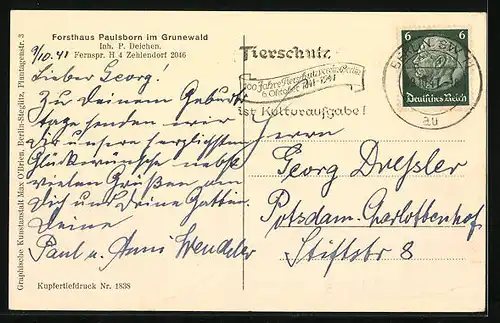 Forsthaus Paulsborn im Grunewald
Inh. P. Deichen.
Fernspr. H 4 Zehlendorf 2046
9/10.41
Lieber Georg!
Zu Deinem Geburts
tage senden wir
Dir unsere herzlichsten
Glückwünsche nebst
vielen Grüßen an
Dich und Deine Gattin.
Deine
Paul u. Anni Wendeler
Kupfertiefdruck Nr. 1838
Graphische Kunstanstalt Max O'Brien, Berlin-Steglitz, Plantagenstr. 3
Tierschutz
100 Jahre Tierschutzverein Berlin
6. Oktober 1841-1941
ist Kulturaufgabe!
BERLIN SW
6 6
Deutsches Reich
Herrn
Georg Dressler
Potsdam-Charlottenhof
Stiftstr 8